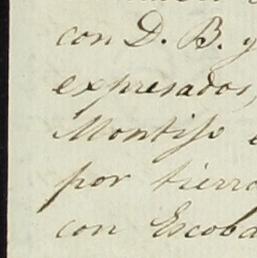 con D. B. y
expresados,
Montijo e
por tierra
con Escoba